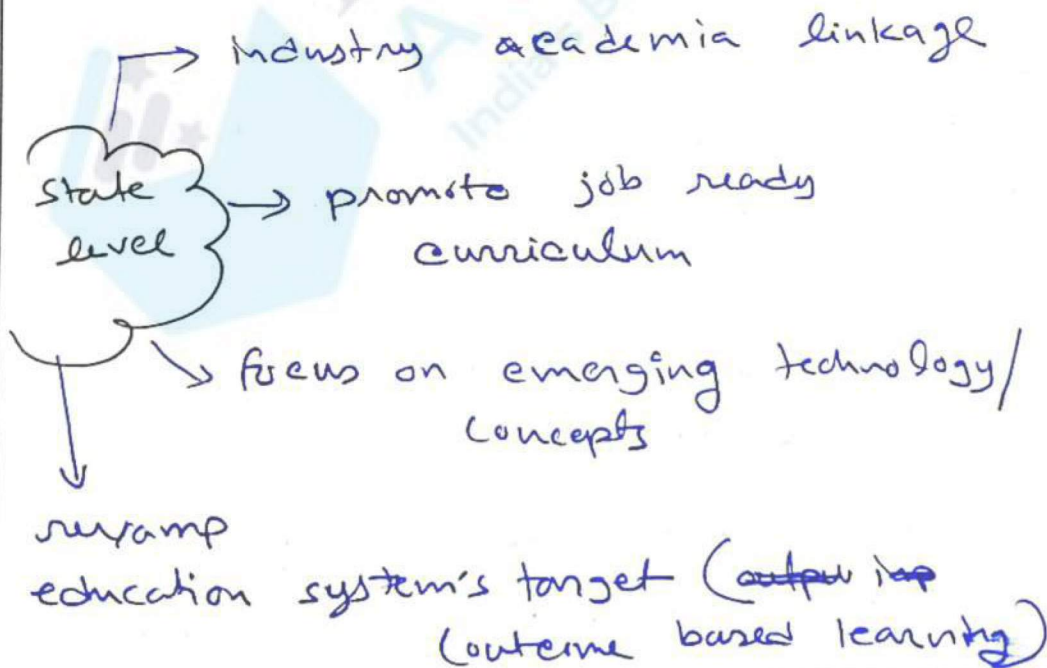 industry academia linkage
state
level
promote job ready
curriculum
focus on emerging technology/
concepts
revamp
education system's target (
(outcome based learning)